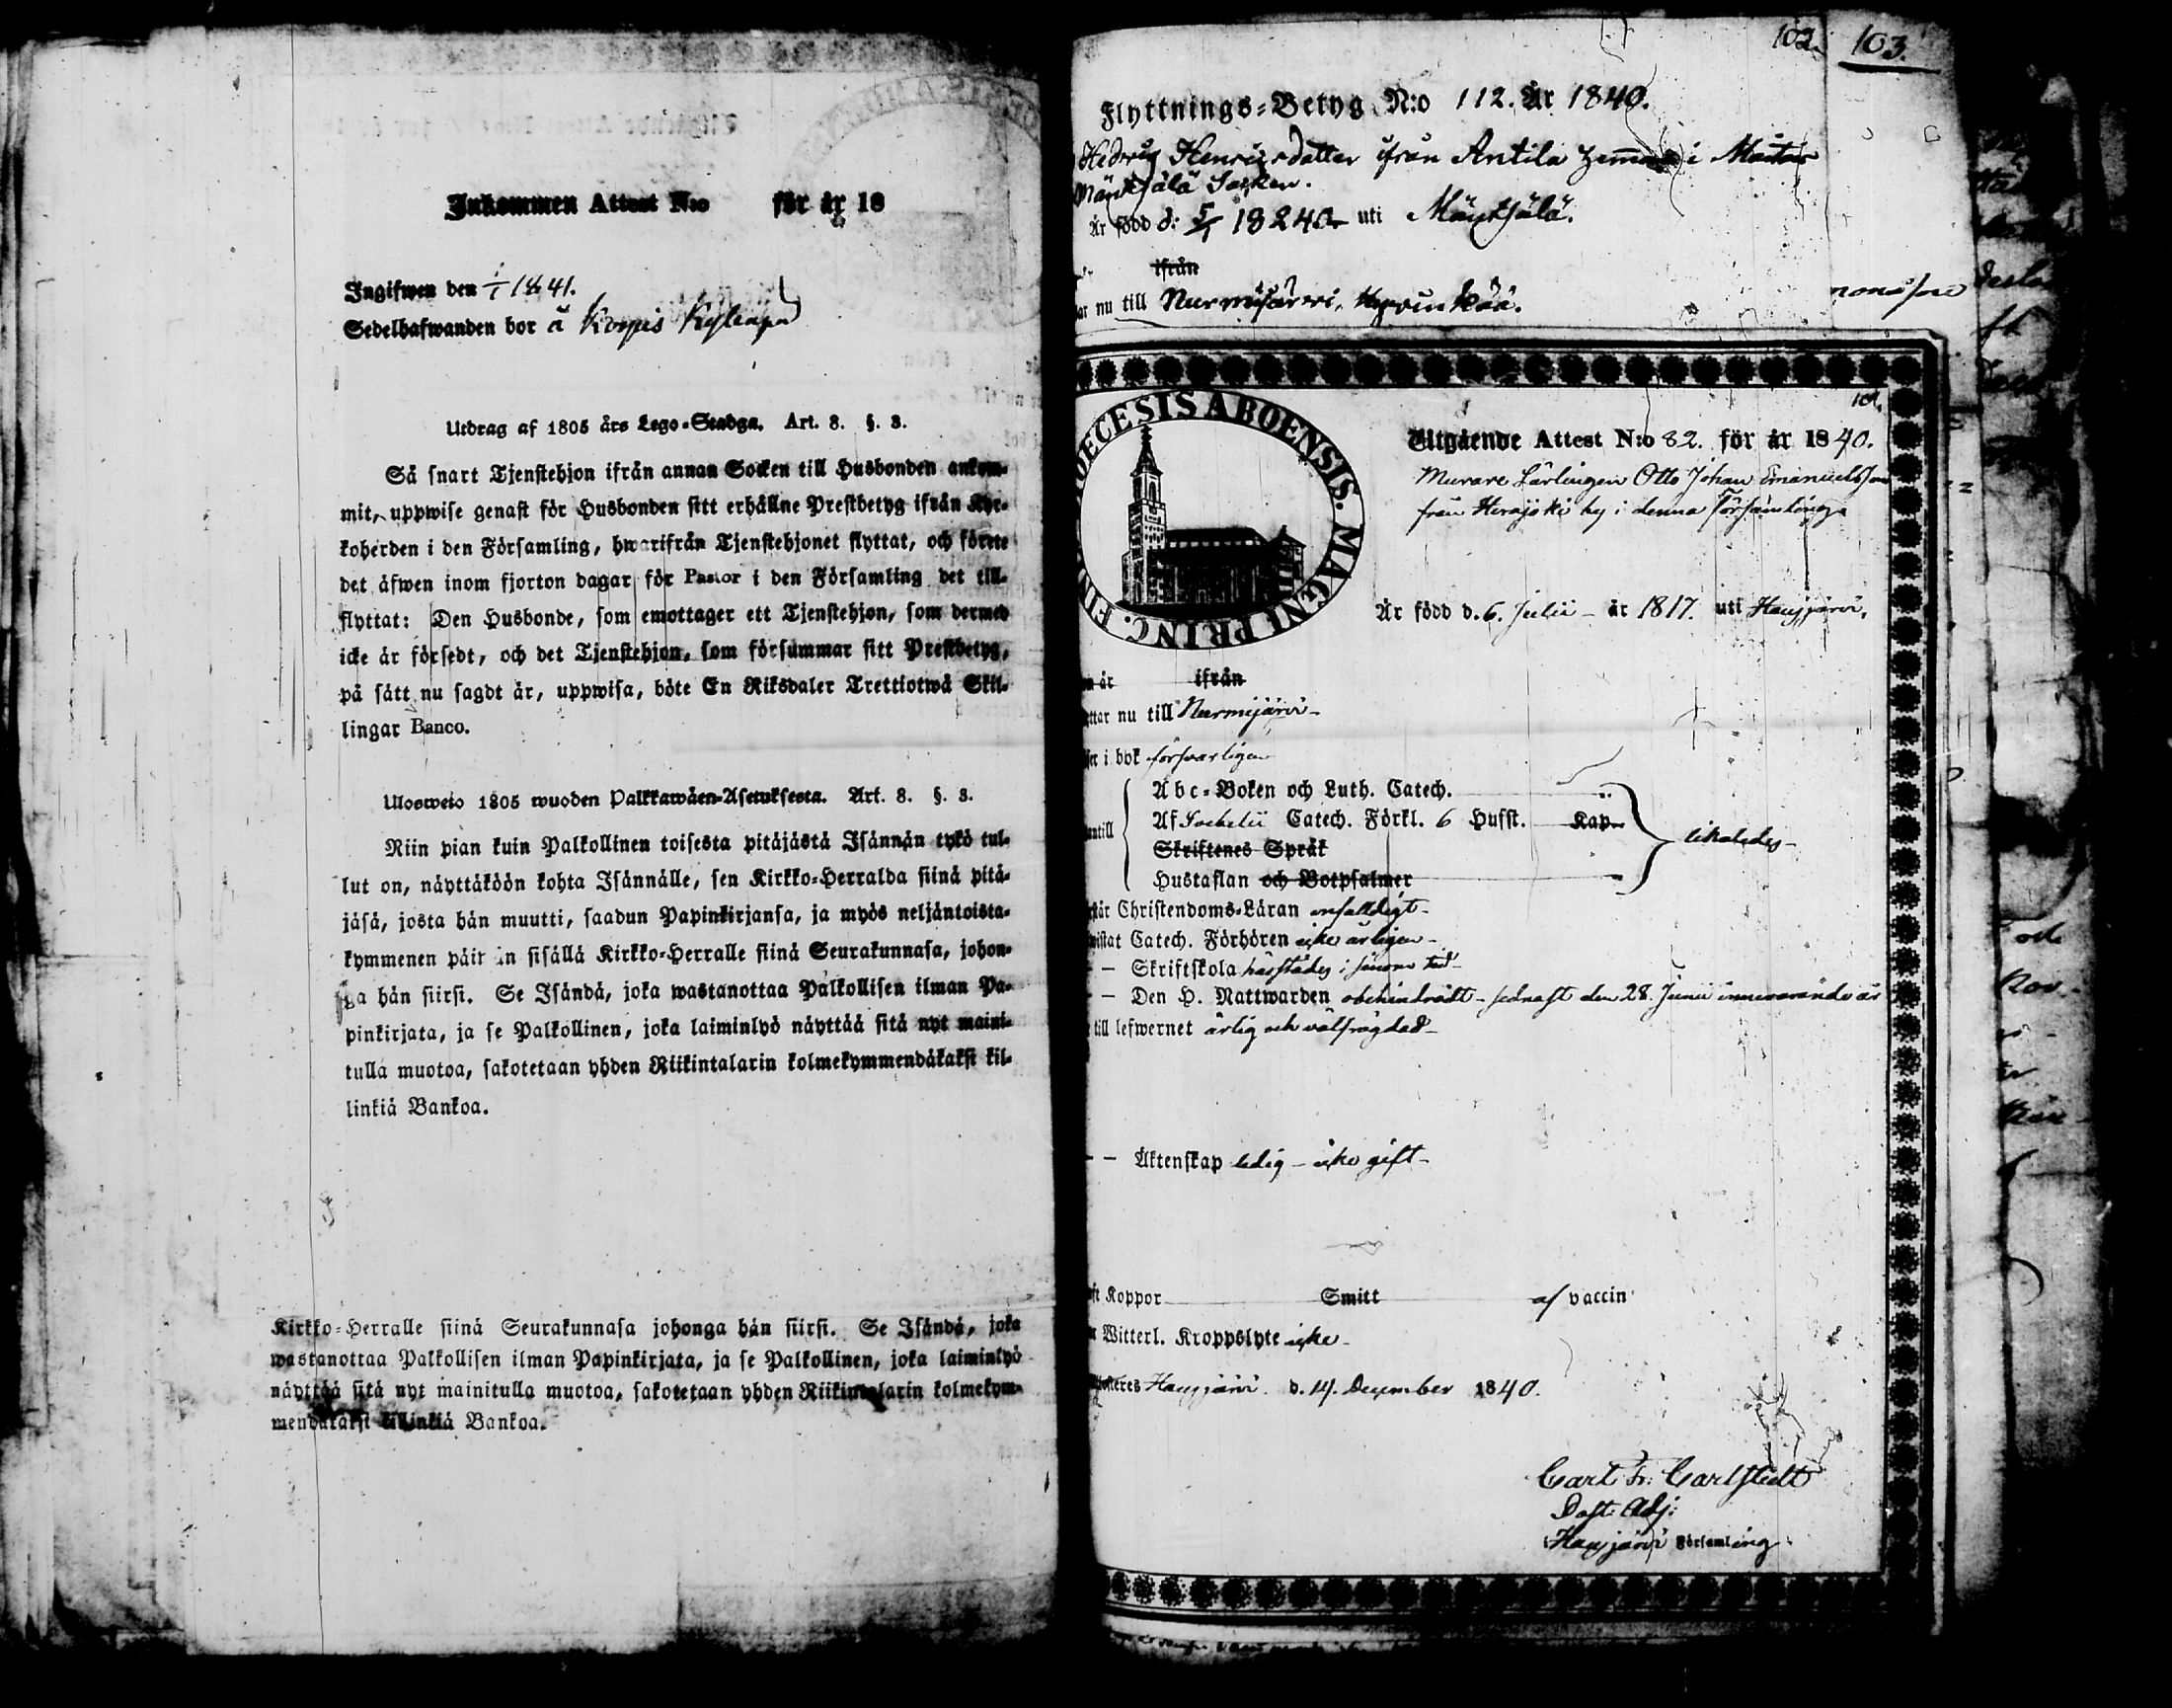 Inkommen Attest N:o för år 18
Ingifwen den 1/1 1841.
Sedelhafwanden bor å
Utdrag af 1805 års Lego-Stadga. Art. 8. §. 3.
Så snart Tjenstehjon ifrån annan Socken till Husbonden ankom-
mit, uppwise genast för Husbonden sitt erhållne Prestbetyg ifrån Kyr-
koherden i den Församling, hwarifrån Tjenstehjonet flyttat, och förete
det äfwen inom fjorton dagar för Pastor i den Församling det till-
flyttat: Den Husbonde, som emottager ett Tjenstehjon, som dermed
icke är försedt, och det Tjenstehjon, som försummar sitt Prestbetyg,
på sätt nu sagdt är, uppwisa, böte En Riksdaler Trettiotwå Skil-
lingar Banco.
Ulosweto 1805 wuoden Palkkawäen-Asetuksesta. Art. 8. §. 3.
Niin pian kuin Palkollinen toisesta pitäjästä Isännän tykö tul-
lut on, näyttäköön kohta Isännälle, sen Kirkko-Herralda siinä pitä-
jäsä, josta hän muutti, saadun Papinkirjansa, ja myös neljäntoista-
kymmenen päiw in sisällä Kirkko-Herralle siinä Seurakunnasa, johon-
ga hän siirsi. Se Isändä, joka wastanottaa Palkollisen ilman Pa-
pinkirjata, ja se Palkollinen, joka laiminlyö näyttää sitä nyt maini-
tulla muotoa, sakotetaan yhden Riikintalarin kolmekymmendäkaksi kil-
linkiä Bankoa.
Kirkko-Herralle siinä Seurakunnasa johonga hän siirsi. Se Isändä, joka
wastanottaa Palkollisen ilman Papinkirjata, ja se Palkollinen, joka laiminlyö
näyttää sitä nyt mainitulla muotoa, sakotetaan yhden Riikintalarin kolmekym-
mendäkaksi killinkiä Bankoa.
102. 103.
Flyttnings-Betyg N:o 112. År 1840.
Hedvig Henricsdotter ifrån Antila i
Mäntsälä Socken.
Är född d: uti Mäntsälä.
ifrån
nu till Nurmijärvi, Hyvinkää.
DIOECESIS ABOENSIS. MAGNI PRINC. FIN
101.
Utgående Attest N:o 82. för år 1840.
Murare Lärlingen Otto Johan Emanuelsson
från Herajoki by i denna Församling
Är född d. 6. Julii år 1817. uti Hausjärvi.
är ifrån
nu till Nurmijärvi
i bok försvarligen
Abc-Boken och Luth. Catech.
Af Catech. Förkl. 6 Hufst. Kap.
Skriftenes Språk
Hustaflan och Botpsalmer
likaledes
Christendoms-Läran enfalldigt
Catech. Förhören icke årligen
Skriftskola härstädes i sinom tid
Den H. Nattwarden obehindradt - sednast den 28. Junii innevarande år
till lefwernet ärlig och välfrägdad
Äktenskap ledig - icke gift
Koppor Smitt af vaccin
Witterl. Kroppslyte icke
Hausjärvi d. 14. December 1840.
Carl Fr. Carlstedt
Past. Adj:
i Hausjärvi Församling.